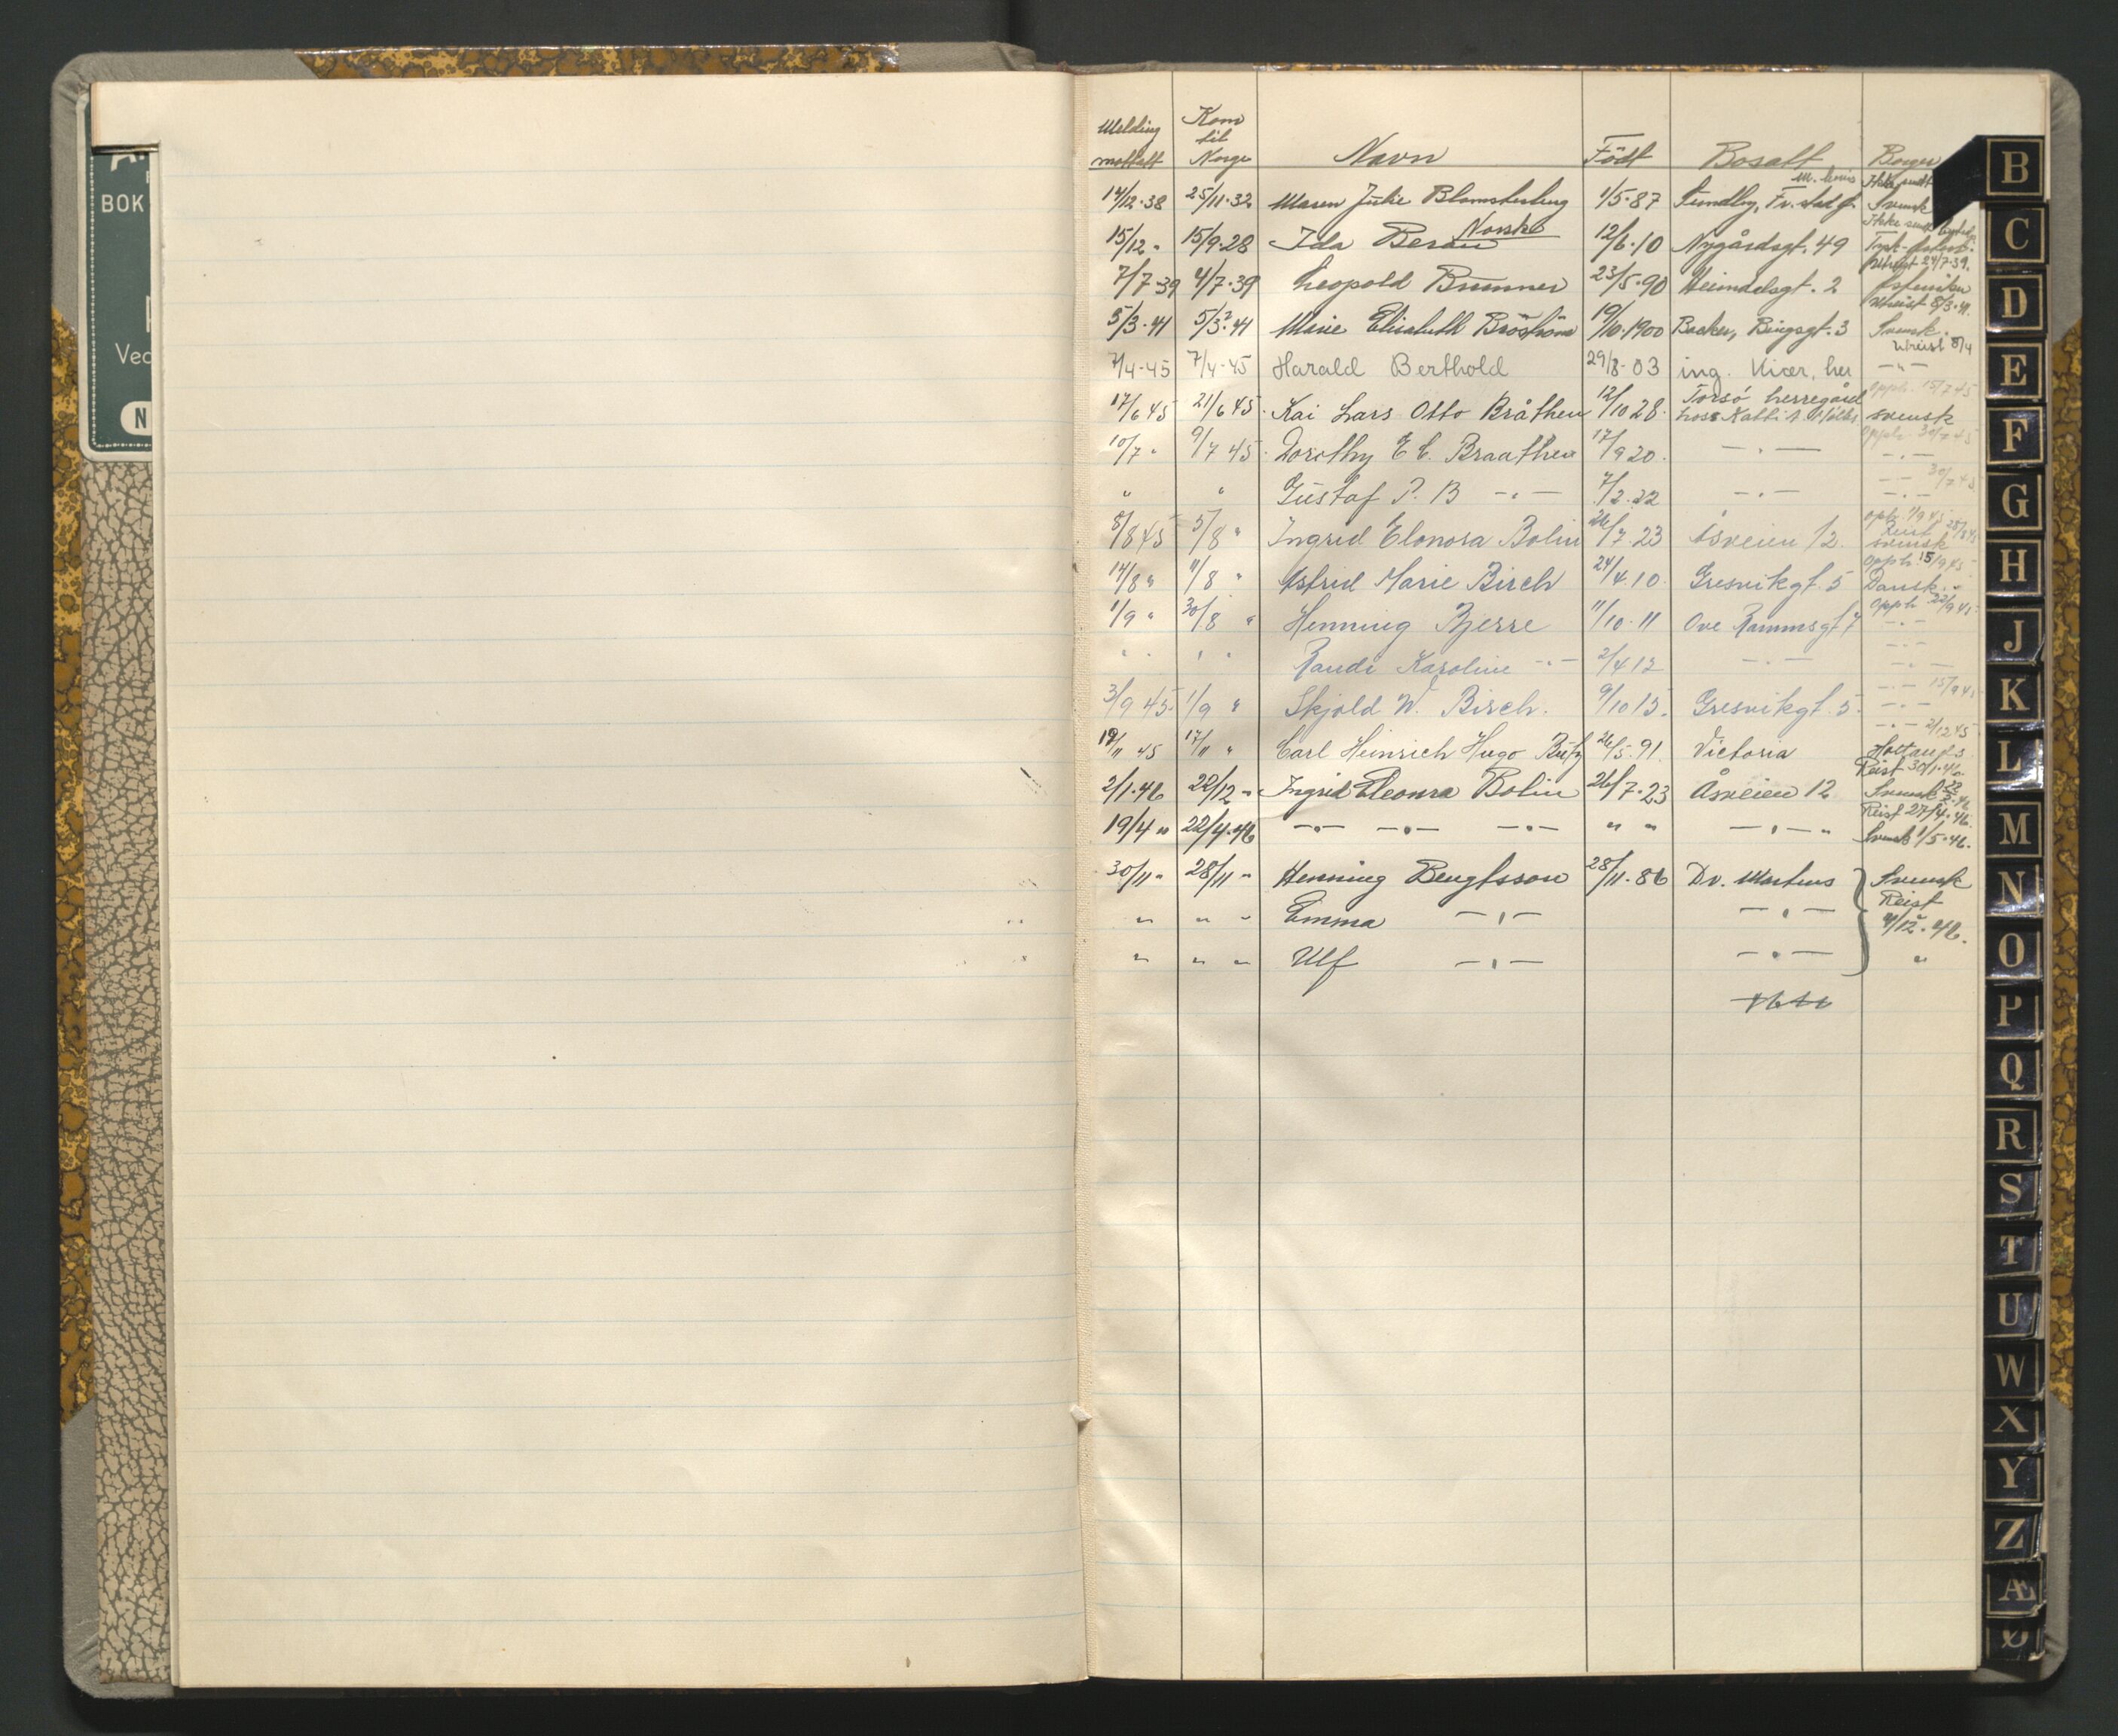 BOK
Ved
N
Melding mottatt Kom til Norge Navn Född Bosatt Borger
14/12.38 25/11.32 Maren Julie Blomsterberg 1/5.87 Sundby, Fr.stad Svensk
15/12 " 15/9.28 Ida Beran Norsk 12/6.10 Nygårdsgt. 49 Tysk
Utreist 24/7.39.
7/7.39 4/7.39 Leopold Brunner 23/5.90 Heimdalsgt. 2
Utreist 8/3.41.
5/3.41 5/3.41 Marie Elisabeth Broström 19/10.1900 Backer, Bingsgt. 3 Svensk.
Utreist 8/4
7/4-45 7/4-45 Harald Berthold 29/8-03 ing. Kiær, her -"-
Opph. 15/7 45
17/6 45 21/6 45. Kai Lars Otto Bråthen 12/10 28. Torsö herregård hoss svensk
Opph. 30/7 45
10/7 " 9/7 45. Dorothy E C. Braathen 17/9 20. -"- -"-
-"- 30/7 45
" " Gustaf P. B -"- 7/2.22 -"- -"-
oph. 1/9 45 Reist
8/8 45 5/8 " Ingrid Elonora Bolin 26/7.23 Åsveien 12. svensk
Opph. 15/9 45
14/8 " 11/8 " Astrid Marie Birch 24/4.10. Gresvikgt. 5 Dansk.
Opph 22/9 45
1/9 " 30/8 " Henning Bjerre 11/10.11 Ove Rammsgt 7 -"-
-"-
" " " " Randi Karoline -"- 2/4 12 -"- -"-
-"- 15/9 45
3/9 45. 1/9 " Skjold W. Birch. 9/10 15. Gresvikgt. 5. -"-
-"- 2/12 45
19/11 45 17/11 " Carl Heinrich Hugo 26/5.91. Victoria
Reist 30/1.46.
2/1.46 22/12 " Ingrid Eleonora Bolin 26/7.23 Åsveien 12 Svensk
Reist 27/4.46.
19/4 " 22/4.46 -"- -"- -"- " " -"- " Svensk 1/5.46.
30/11 " 28/11 " Henning Bengtsson 28/11.86 Dr. Martens Svensk
" " " Emma -"- -"- Reist
/12.46.
" " " Ulf -"- -"- "
B
C
D
E
F
G
H
J
K
L
M
N
O
P
Q
R
S
T
U
W
X
Y
Z
Æ
Ø